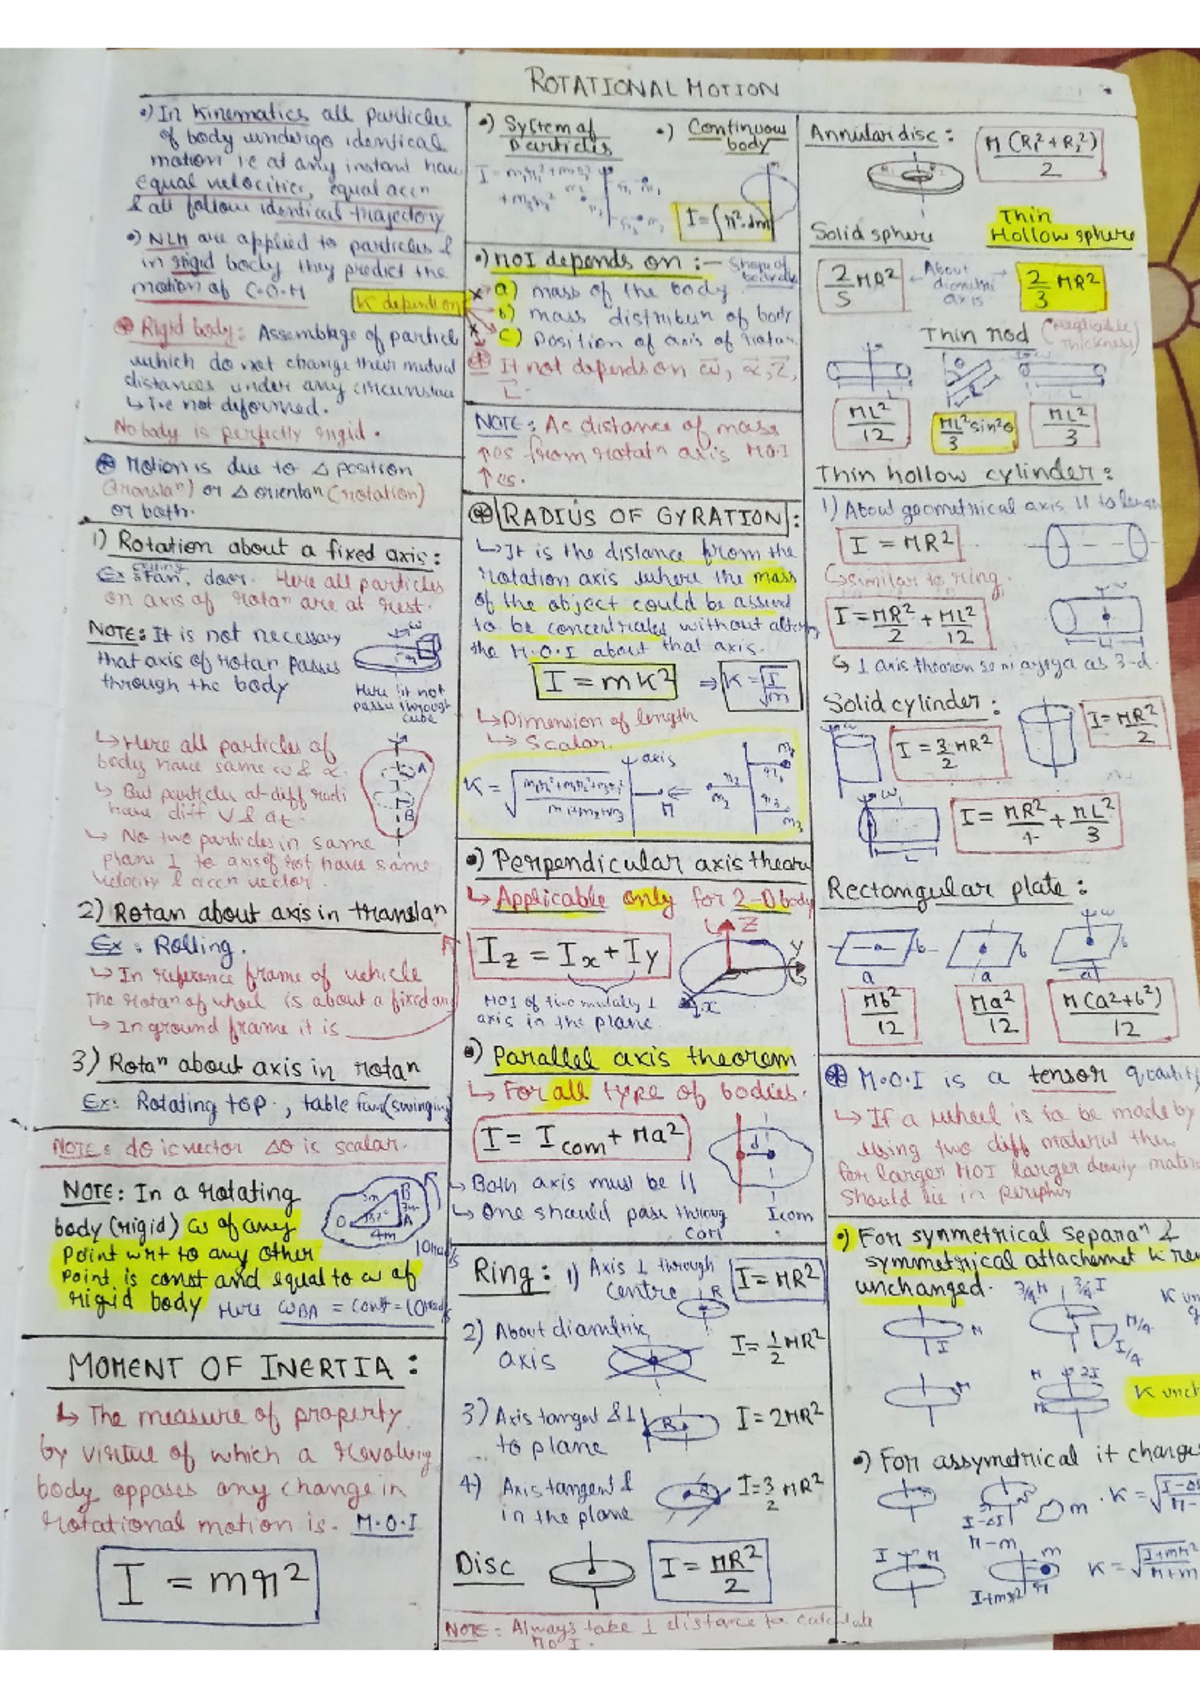 ROTATIONAL MOTION
•) In Kinematics all particles
of body undergo identical
motion ie at any instant hav
equal velocities, equal accn
& all follow identical trajectory
•) NLM are applied to particles &
in rigid body they predict the
motion of C.O.M
⊛ Rigid body: Assemblage of particl
which do not change their mutual
distances under any circumstance
↳ i.e not deformed.
No body is perfectly rigid.
⊛ Motion is due to Δ position
(Translaⁿ) or Δ orientaⁿ (rotation)
or both.
1) Rotation about a fixed axis:
Ex: ceiling Fan, door. Here all particles
on axis of rotaⁿ are at rest.
NOTE: It is not necessary
that axis of rotan passes
through the body
ω
r
Here it not
passes through
cube
↳ Here all particles of
body have same ω & α.
↳ But particles at diff radii
have diff v & at.
↳ No two particles in same
plane ⊥ to axis of rot have same
velocity & accn vector.
A
B
2) Rotan about axis in translaⁿ
Ex: Rolling.
↳ In reference frame of vehicle
The rotan of wheel is about a fixed an
↳ In ground frame it is
3) Rotaⁿ about axis in rotan
Ex: Rotating top, table fan (swinging
NOTE: dθ is vector Δθ is scalar.
NOTE: In a rotating
body (rigid) ω of any
point wrt to any other
point is const and equal to ω of
rigid body Here ωBA = const = 10rad/s
5m
B
3m
O
37°
A
4m
10rad/s
MOMENT OF INERTIA:
↳ The measure of property
by virtue of which a revolving
body opposes any change in
rotational motion is. M.O.I
I = mr²
•) System of
Particles
I = m₁r₁² + m₂r₂²
+ m₃r₃²
•) Continuous
body
I = ∫r².dm
•) MOI depends on :- Shape of
K depend on
a) mass of the body
b) mass distribun of body
c) Position of axis of rotan
⊛ It not depends on ω⃗, α⃗, τ⃗,
L⃗
NOTE: As distance of mass
↑es from rotatⁿ axis M.O.I
↑es.
⊛ RADIUS OF GYRATION:
↳ It is the distance from the
rotation axis where the mass
of the object could be assumd
to be concentrated without altering
the M.O.I about that axis.
I = mK² ⇒ K = √(I/m)
↳ Dimension of length
↳ Scalar.
K = √((m₁r₁²+m₂r₂²+m₃r₃²)/(m₁+m₂+m₃))
axis
M
m₁
r₁
r₂
m₂
r₃
m₃
•) Perpendicular axis theore
↳ Applicable only for 2-D body
Iz = Ix + Iy
MOI of two mutually ⊥
axis in the plane
Z
Y
X
•) Parallel axis theorem
↳ For all type of bodies.
I = Icom + Ma²
d
Icom
↳ Both axis must be ||
↳ One should pass throug
com
Ring: 1) Axis ⊥ through
centre
R
I = MR²
2) About diametric
axis
I = 1/2 MR²
3) Axis tangent & ⊥
to plane
R
I = 2MR²
4) Axis tangent &
in the plane
R
I = 3/2 MR²
Disc
I = MR²/2
NOTE: Always take ⊥ distance to calculate
M.O.I.
Annular disc:
M(R₁²+R₂²)/2
Solid sphere
2/5 MR²
← About
diametric
axis →
Thin
Hollow sphere
2/3 MR²
Thin rod (Negligible
thickness)
L
L
ML²/12
ML²/3 sin²θ
ML²/3
Thin hollow cylinder:
1) About geometrical axis || to length
I = MR²
↳ similar to ring.
I = MR²/2 + ML²/12
L
↳ ⊥ axis theorem se ni aayga as 3-d.
Solid cylinder:
I = 3/2 MR²
I = MR²/2
ω
L
I = MR²/4 + ML²/3
Rectangular plate:
a
b
a
b
a
b
ω
Mb²/12
Ma²/12
M(a²+b²)/12
⊛ M.O.I is a tensor quantity
↳ If a wheel is to be made by
using two diff material then
for larger MOI larger density mater
should lie in peripher
•) For symmetrical separaⁿ &
symmetrical attachemet K rem
unchanged.
M
I
3/4 M
3/4 I
M/4
I/4
K un
M
M
2I
M
K unch
•) For assymetrical it change
I-ΔI
M-m
m
K = √(I-Δ
M-
I
M
m
I+mr²
r
K = √(I+mr²
M+m